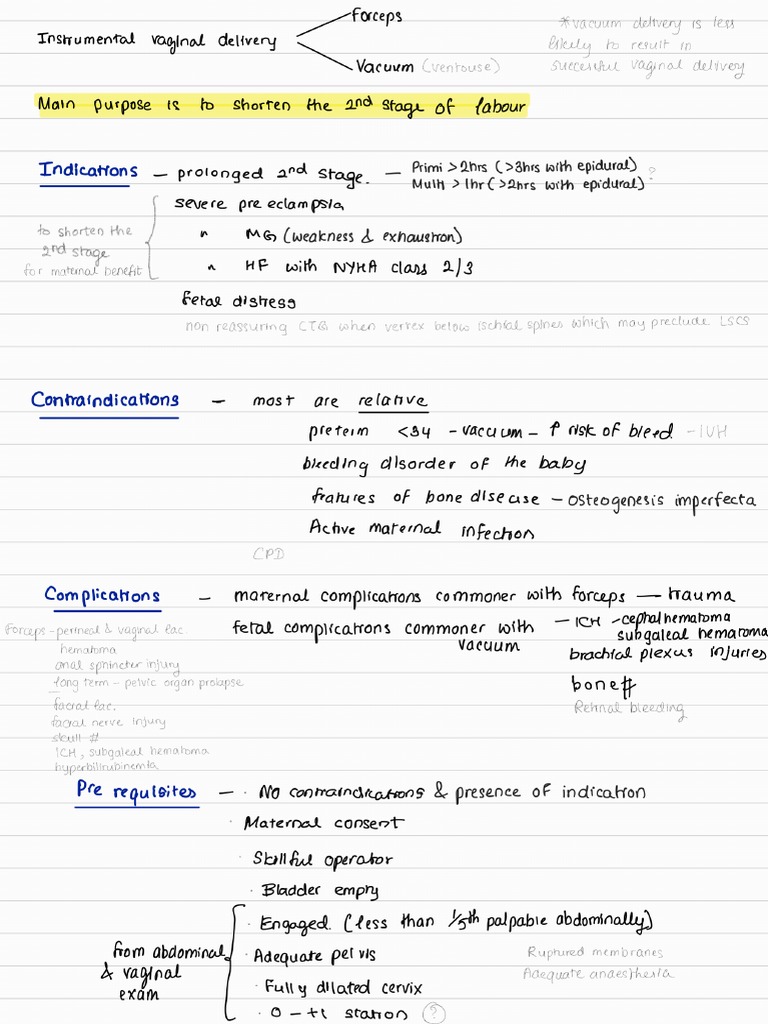 Forceps
Instrumental vaginal delivery
Vacuum (ventouse)
*vacuum delivery is less
likely to result in
successful vaginal delivery
Main purpose is to shorten the 2nd stage of labour
Indications – prolonged 2nd stage. – Primi >2hrs (>3hrs with epidural)
Multi >1hr (>2hrs with epidural) ?
severe pre eclampsia
" MG (weakness & exhaustion)
" HF with NYHA class 2/3
to shorten the
2nd stage
for maternal benefit
Fetal distress
non reassuring CTG when vertex below ischial spines which may preclude LSCS
Contraindications – most are relative
preterm <34 - vacuum - ↑ risk of bleed - IVH
bleeding disorder of the baby
features of bone disease – osteogenesis imperfecta
Active maternal infection
CPD
Complications – maternal complications commoner with forceps — trauma
fetal complications commoner with vacuum
– ICH - cephalhematoma
subgaleal hematoma
brachial plexus injuries
bone #
Retinal bleeding
Forceps - perineal & vaginal lac.
hematoma
anal sphincter injury
long term - pelvic organ prolapse
facial lac.
facial nerve injury
skull #
ICH, subgaleal hematoma
hyperbilirubinemia
Pre requisites – · No contraindications & presence of indication
· Maternal consent
· Skillful operator
· Bladder empty
· Engaged. (less than 1/5th palpable abdominally)
· Adequate pelvis
· Fully dilated cervix
· 0 - +1 station ?
from abdominal
& vaginal
exam
Ruptured membranes
Adequate anaesthesia